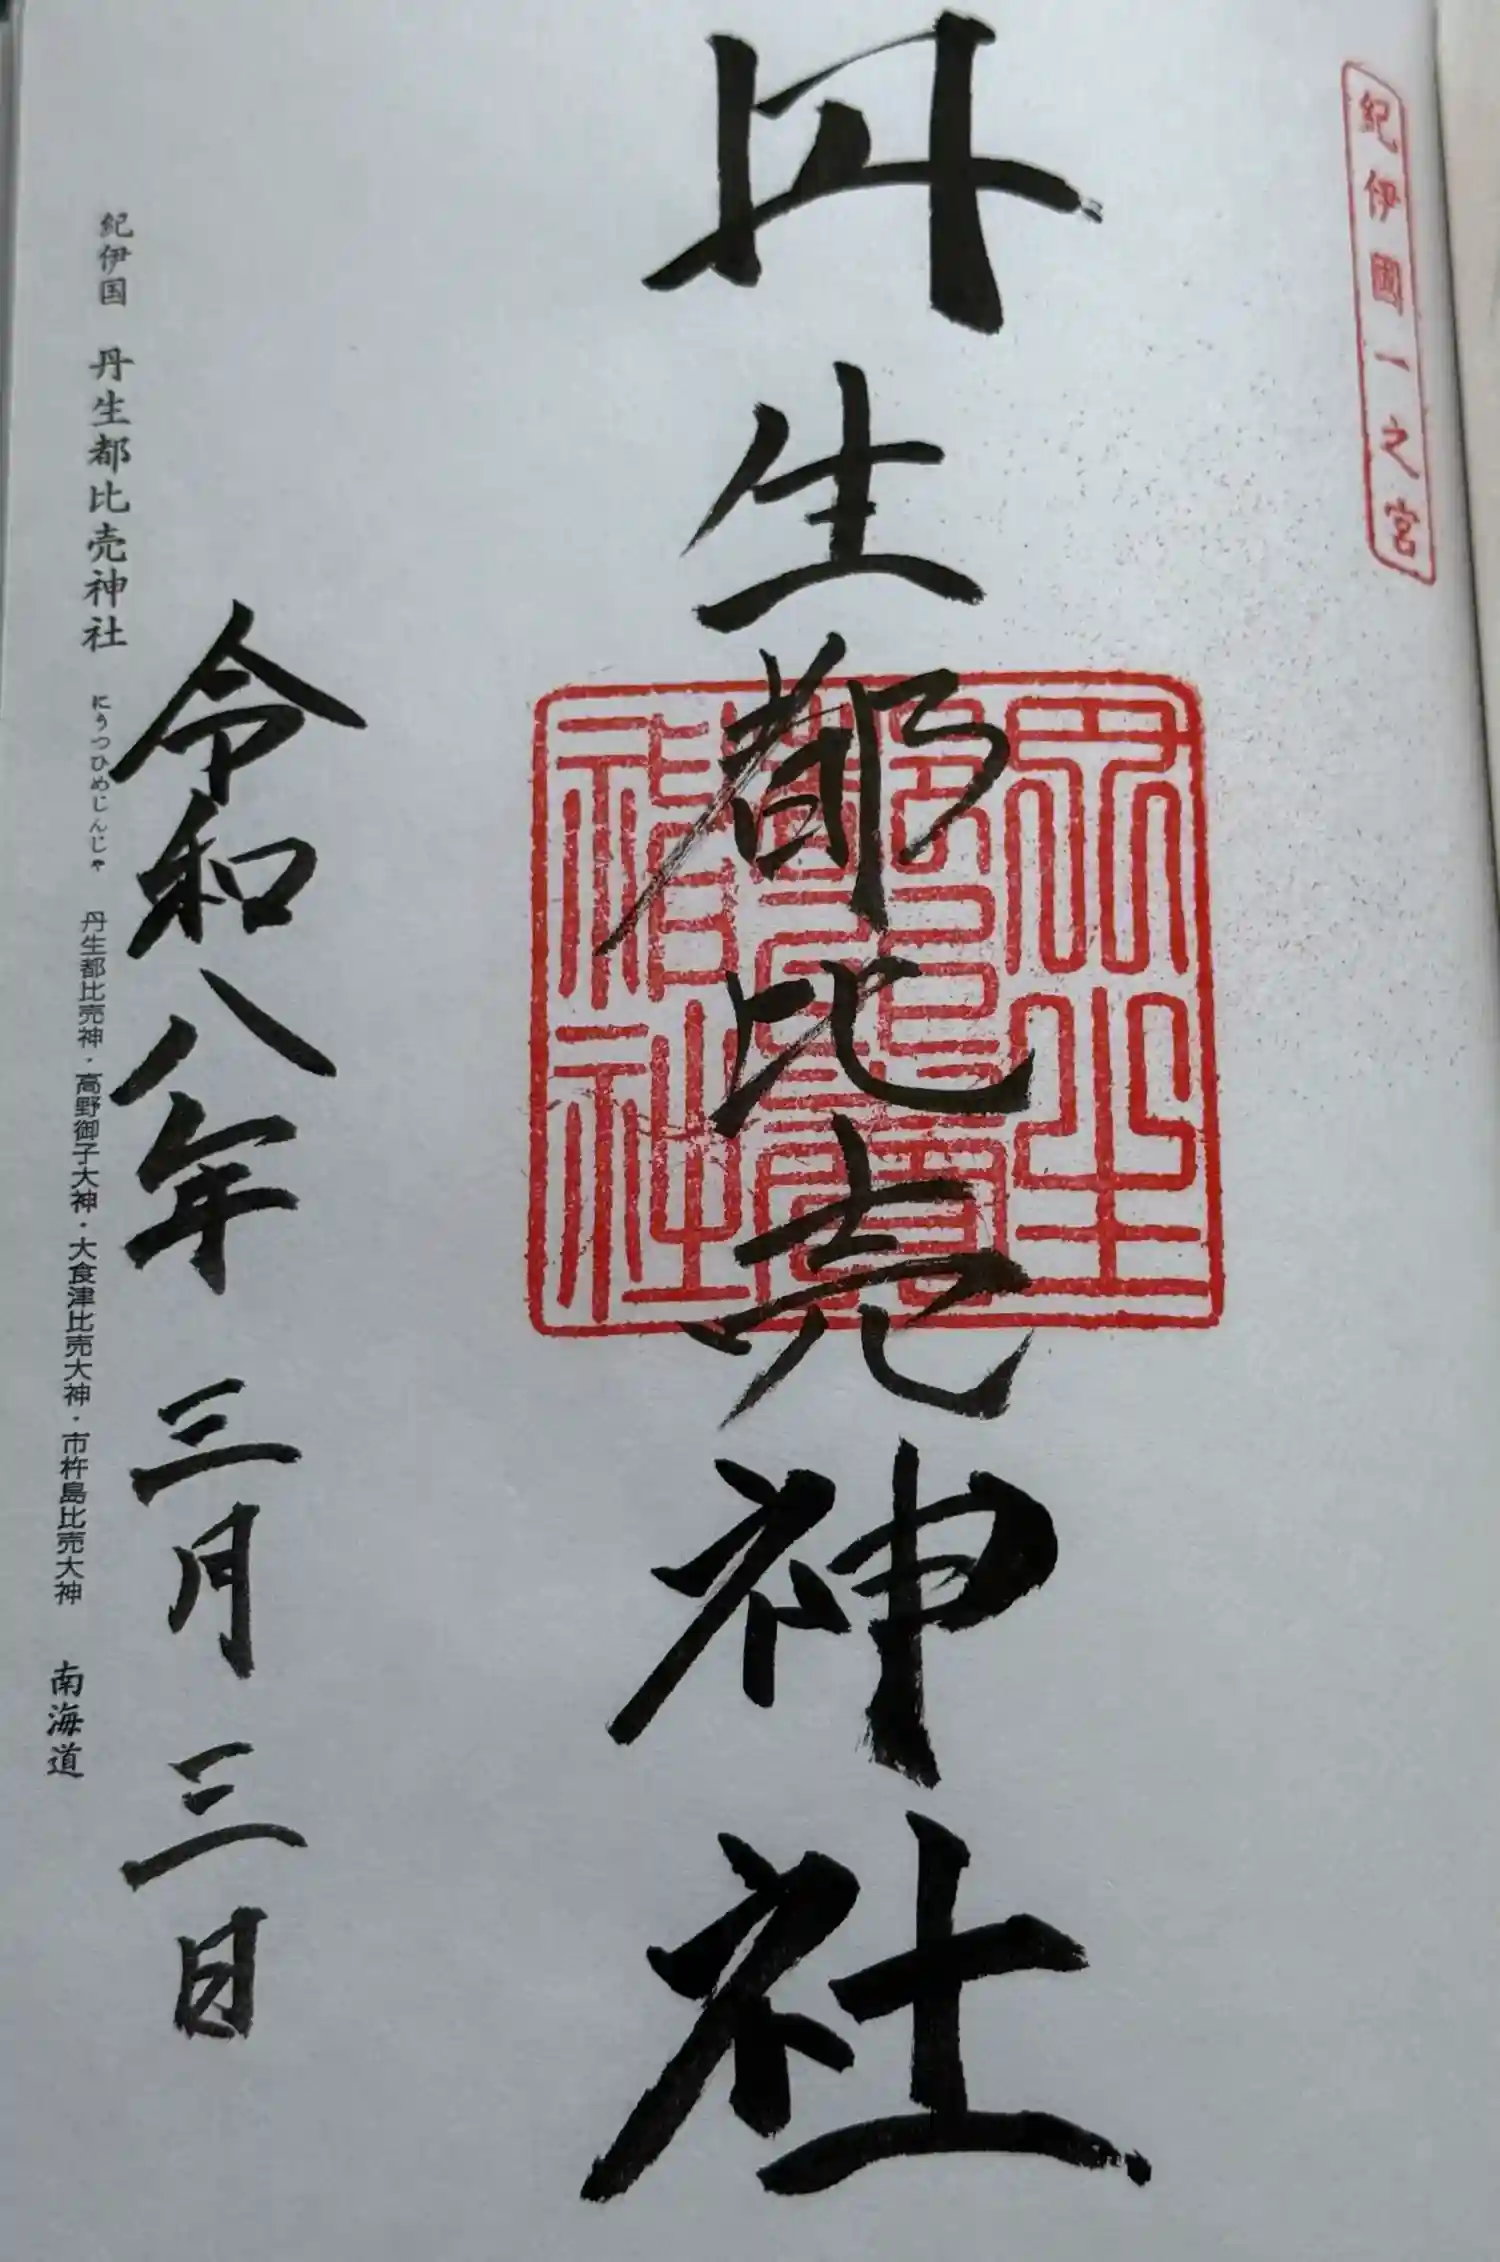 紀伊國一之宮
丹生都比売神社
令和八年 三月 三日
紀伊国 丹生都比売神社 にうつひめじんじゃ 丹生都比売神・高野御子大神・大食津比売大神・市杵島比売大神 南海道